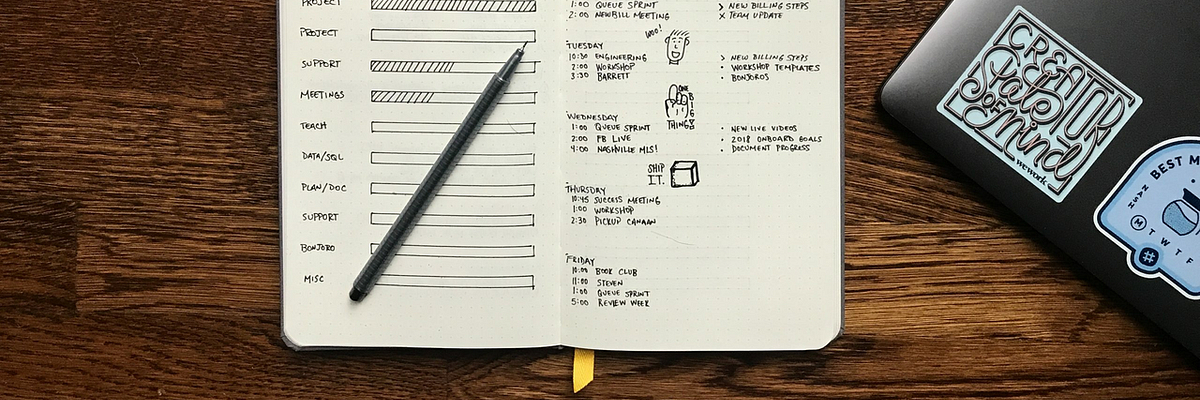 PROJECT
PROJECT
SUPPORT
MEETINGS
TEACH
DATA/SQL
PLAN/DOC
SUPPORT
BONJORO
MISC
1:00 QUEUE SPRINT
2:00 NEWBILL MEETING
> NEW BILLING STEPS
X TEAM UPDATE
WOO!
TUESDAY
10:30 ENGINEERING
2:00 WORKSHOP
3:30 BARRETT
> NEW BILLING STEPS
• WORKSHOP TEMPLATES
• BONJOROS
ONE
BIG
THING
WEDNESDAY
1:00 QUEUE SPRINT
2:00 FB LIVE
4:00 NASHVILLE MLS!
• NEW LIVE VIDEOS
• 2018 ONBOARD GOALS
• DOCUMENT PROGRESS
SHIP
IT.
THURSDAY
10:45 SUCCESS MEETING
1:00 WORKSHOP
2:30 PICKUP CANAAN
FRIDAY
10:00 BOOK CLUB
11:00 STEVEN
1:00 QUEUE SPRINT
5:00 REVIEW WEEK
CREATOR
State
OF
Mind
wework
BEST M
NASH
M T W T F
#